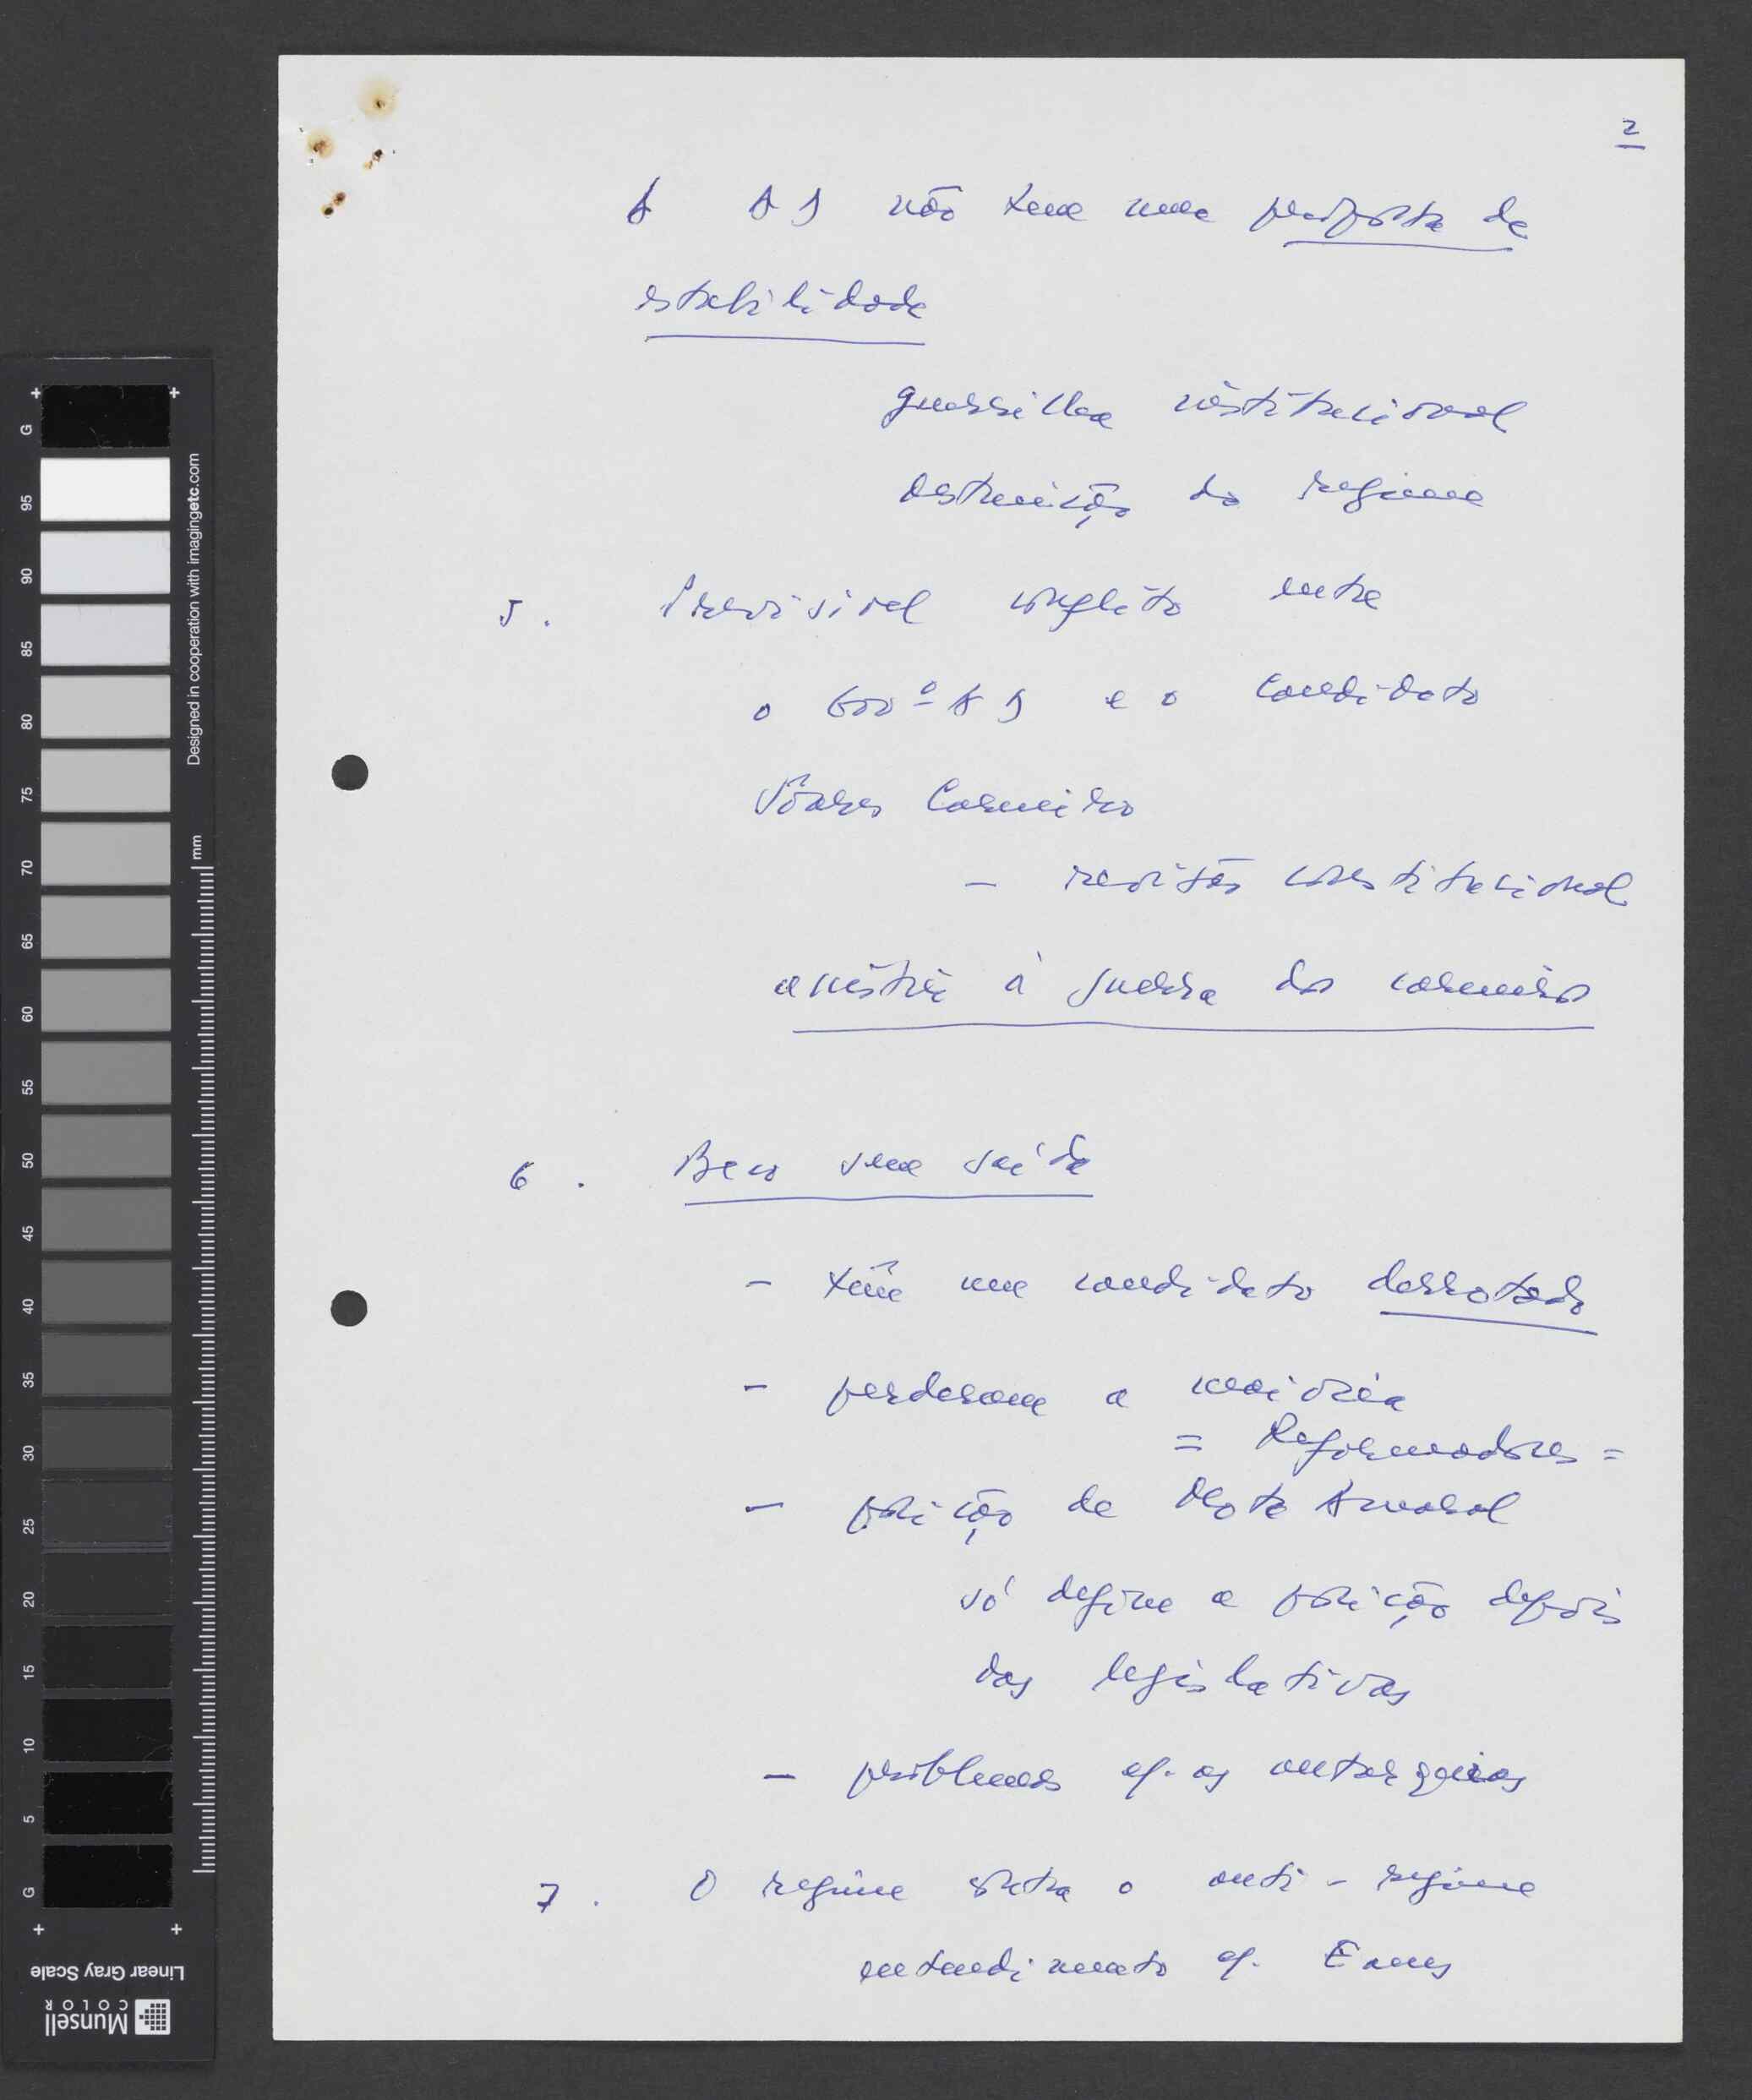 2
A AD não tem uma proposta de
estabilidade
guerrilha institucional
destruição do regime
5. Previsível conflito entre
o Govº AD e o candidato
Soares Carneiro
- revisão constitucional
à guerra do
6. Beco sem saída
- têm um candidato derrotado
- perderam a maioria
= Reformadores =
- posição de Mota Amaral
só define a posição depois
das legislativas
- problemas c/. as autarquias
7. O regime contra o anti-regime
entendimento c/. Eanes
G 95 90 85 80 75 70 65 60 55 50 45 40 35 30 25 20 15 10 5 G
Designed in cooperation with imagingetc.com
mm
Linear Gray Scale
Munsell
COLOR